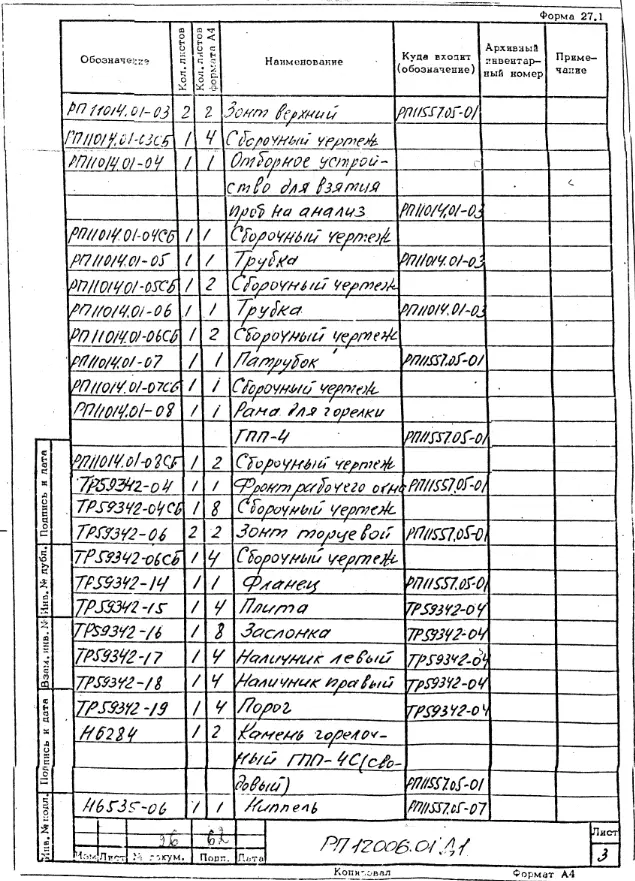 Форма 27.1
Обозначение Кол. листов Кол. листов формата А4 Наименование Куда входит (обозначение) Архивный инвентарный номер Примечание
РП11014.01-03 2 2 Зонт верхний РП11557.05-01
РП11014.01-03СБ 1 4 Сборочный чертеж
РП11014.01-04 1 1 Отборное устрой-
ство для взятия
проб на анализ РП11014.01-03
РП11014.01-04СБ 1 1 Сборочный чертеж
РП11014.01-05 1 1 Трубка РП11014.01-03
РП11014.01-05СБ 1 2 Сборочный чертеж
РП11014.01-06 1 1 Трубка РП11014.01-03
РП11014.01-06СБ 1 2 Сборочный чертеж
РП11014.01-07 1 1 Патрубок РП11557.05-01
РП11014.01-07СБ 1 1 Сборочный чертеж
РП11014.01-08 1 1 Рама для горелки
ГПП-4 РП11557.05-01
РП11014.01-08СБ 1 2 Сборочный чертеж
ТР59342-04 1 1 Фронт рабочего окна РП11557.05-01
ТР59342-04СБ 1 8 Сборочный чертеж
ТР59342-06 2 2 Зонт торцевой РП11557.05-01
ТР59342-06СБ 1 4 Сборочный чертеж
ТР59342-14 1 1 Фланец РП11557.05-01
ТР59342-15 1 4 Плита ТР59342-04
ТР59342-16 1 8 Заслонка ТР59342-04
ТР59342-17 1 4 Наличник левый ТР59342-04
ТР59342-18 1 4 Наличник правый ТР59342-04
ТР59342-19 1 4 Порог ТР59342-04
Н6284 1 2 Камень горелоч-
ный ГПП-4С(сво-
довый) РП11557.05-01
Н6535-06 1 1 Ниппель РП11557.05-07
Инв. № подл. Подпись и дата Взам. инв. № Инв. № дубл. Подпись и дата
96 62
Изм Лист № докум. Подп. Дата
РП12006.01Д1
Лист
3
Копировал Формат А4